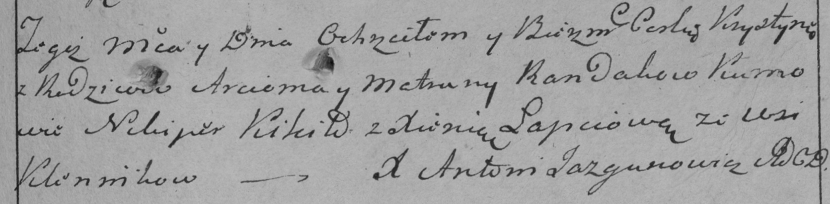 Tegoż mca y Dnia Ochrzciłem y Bierzm Corkę Krystynę
z Rodzicow Arcioma y Matruny Randakow Kumo
wie Nikiper Kikiło z Xienią Lapciową ze wsi
Klennikow — X Antoni Jazgunowicz